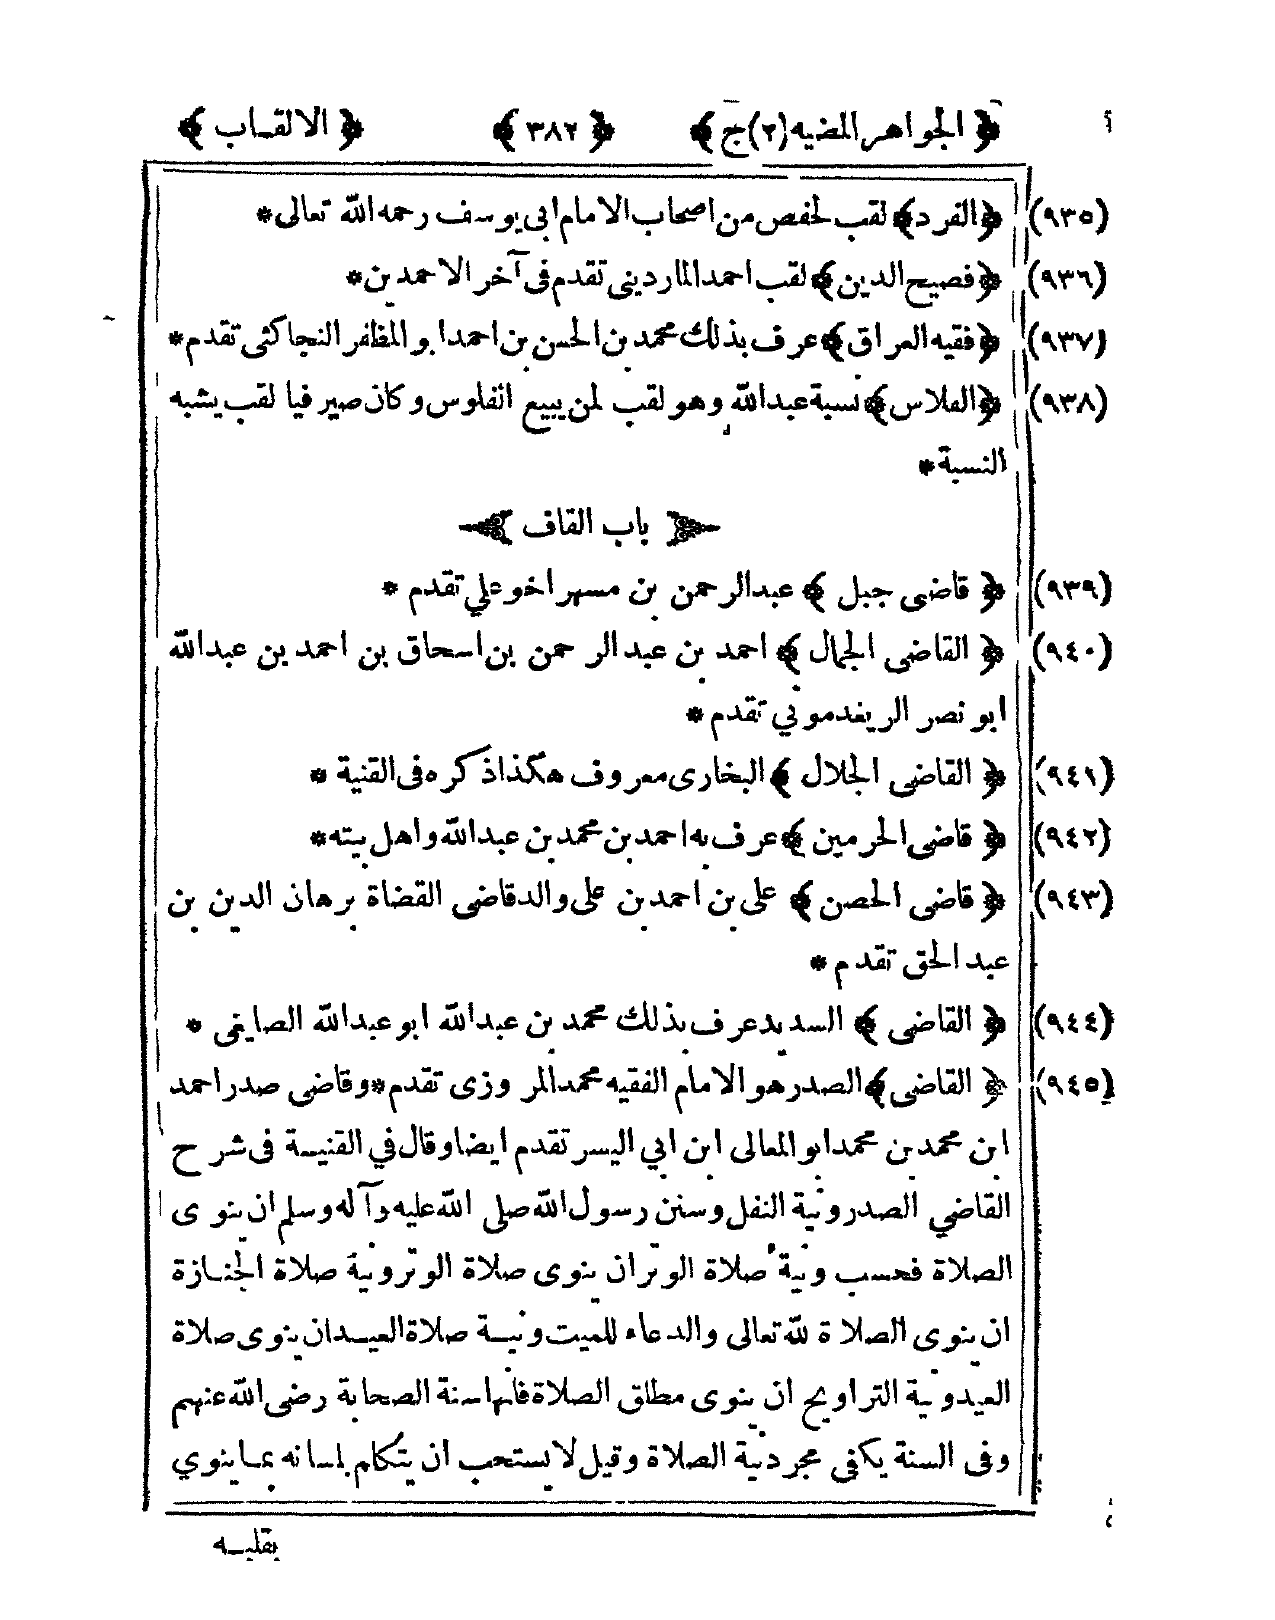 ﴿ الجواهر المضيه (٢) ج ﴾ ﴿ ٣٨٢ ﴾ ﴿ الالقـاب ﴾
(٩٣٥) ﴿ الفرد ﴾ لقب لحفص من اصحاب الامام ابى يوسف رحمه الله تعالى *
(٩٣٦) ﴿ فصيح الدين ﴾ لقب احمد الماردينى تقدم فى آخر الاحمدين *
(٩٣٧) ﴿ فقيه العراق ﴾ عرف بذلك محمد بن الحسن بن احمد ابو المظفر النجاكثى تقدم *
(٩٣٨) ﴿ الفلاس ﴾ نسبة عبدالله وهو لقب لمن يبيع الفلوس وكان صيرفيا لقب يشبه
النسبة *
باب القاف
(٩٣٩) ﴿ قاضى جبل ﴾ عبدالرحمن بن مسهر اخو علي تقدم *
(٩٤٠) ﴿ القاضى الجمال ﴾ احمد بن عبد الرحمن بن اسحاق بن احمد بن عبدالله
ابو نصر الريغدموني تقدم *
(٩٤١) ﴿ القاضى الجلال ﴾ البخارى معروف هكذا ذكره فى القنية *
(٩٤٢) ﴿ قاضى الحرمين ﴾ عرف به احمد بن محمد بن عبدالله واهل بيته *
(٩٤٣) ﴿ قاضى الحصن ﴾ على بن احمد بن على والد قاضى القضاة برهان الدين بن
عبد الحق تقدم *
(٩٤٤) ﴿ القاضى ﴾ السديد عرف بذلك محمد بن عبدالله ابو عبدالله الصايغى *
(٩٤٥) ﴿ القاضى ﴾ الصدر هو الامام الفقيه محمد المروزى تقدم * وقاضى صدر احمد
ابن محمد بن محمد ابو المعالى ابن ابي اليسر تقدم ايضا وقال في القنيـة فى شرح
القاضي الصدر ونية النفل وسنن رسول الله صلى الله عليه وآله وسلم ان ينوى
الصلاة فحسب ونية صلاة الوتر ان ينوى صلاة الوتر ونية صلاة الجنـازة
ان ينوى الصلاة لله تعالى والدعاء للميت ونيـة صلاة العيـد ان ينوى صلاة
العيد ونية التراويح ان ينوى مطلق الصلاة فانها سنة الصحابة رضى الله عنهم
وفى السنة يكفى مجرد نية الصلاة وقيل لا يستحب ان يتكلم بلسانه بمـا ينوي
بقلبـه